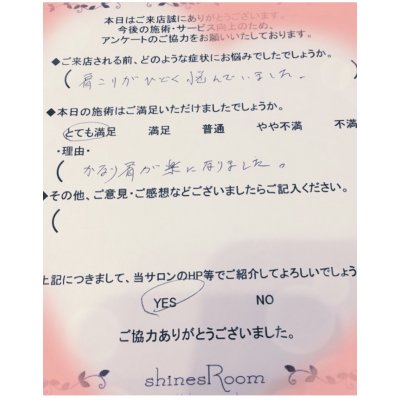 本日はご来店誠にありがとうございます。
今後の施術・サービス向上のため、
アンケートのご協力をお願いいたしております。
◆ご来店される前、どのような症状にお悩みでしたでしょうか。
(肩こりがひどく悩んでいました。
◆本日の施術はご満足いただけましたでしょうか。
とても満足 満足 普通 やや不満 不満
・理由・
(かなり肩が楽になりました。
◆その他、ご意見・ご感想などございましたらご記入ください。
(
上記につきまして、当サロンのHP等でご紹介してよろしいでしょう
YES NO
ご協力ありがとうございました。
shinesRoom